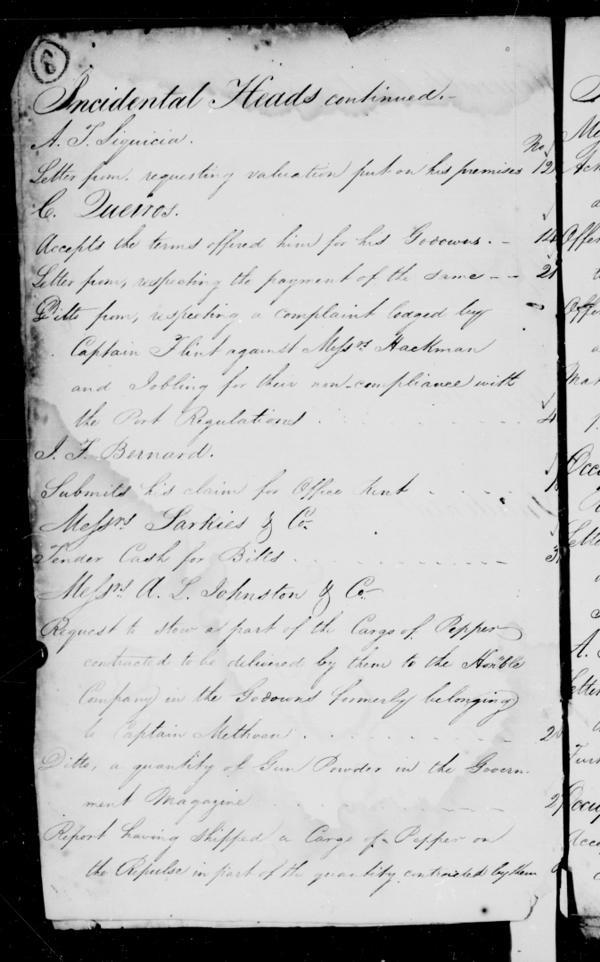 8
Incidental Heads continued.-
A. F. Siquicia.
No
Letter from, requesting valuation put on his premises 12
C. Queiros.
Accepts the terms offered him for his Godowns. - 14
Letter from, respecting the payment of the same - - 2
Ditto from, respecting a complaint lodged by
Captain Flint against Messrs Hackman
and Jobling for their non-compliance with
the Port Regulations . . . . . 4
J. F. Bernard.
Submits his claim for Office Rent
Messrs Sarkies & Co.
Tender Cash for Bills . . . . . 3
Messrs A. L. Johnston & Co.
Request to stow a part of the Cargo of Pepper
contracted to be delivered by them to the Honble
Company in the Godowns formerly belonging
to Captain Methven . . . . . 2
Ditto, a quantity of Gun Powder in the Govern-
ment Magazine . . . . . 2
Report having shipped a Cargo of Pepper on
the Repulse in part of the quantity contracted by them